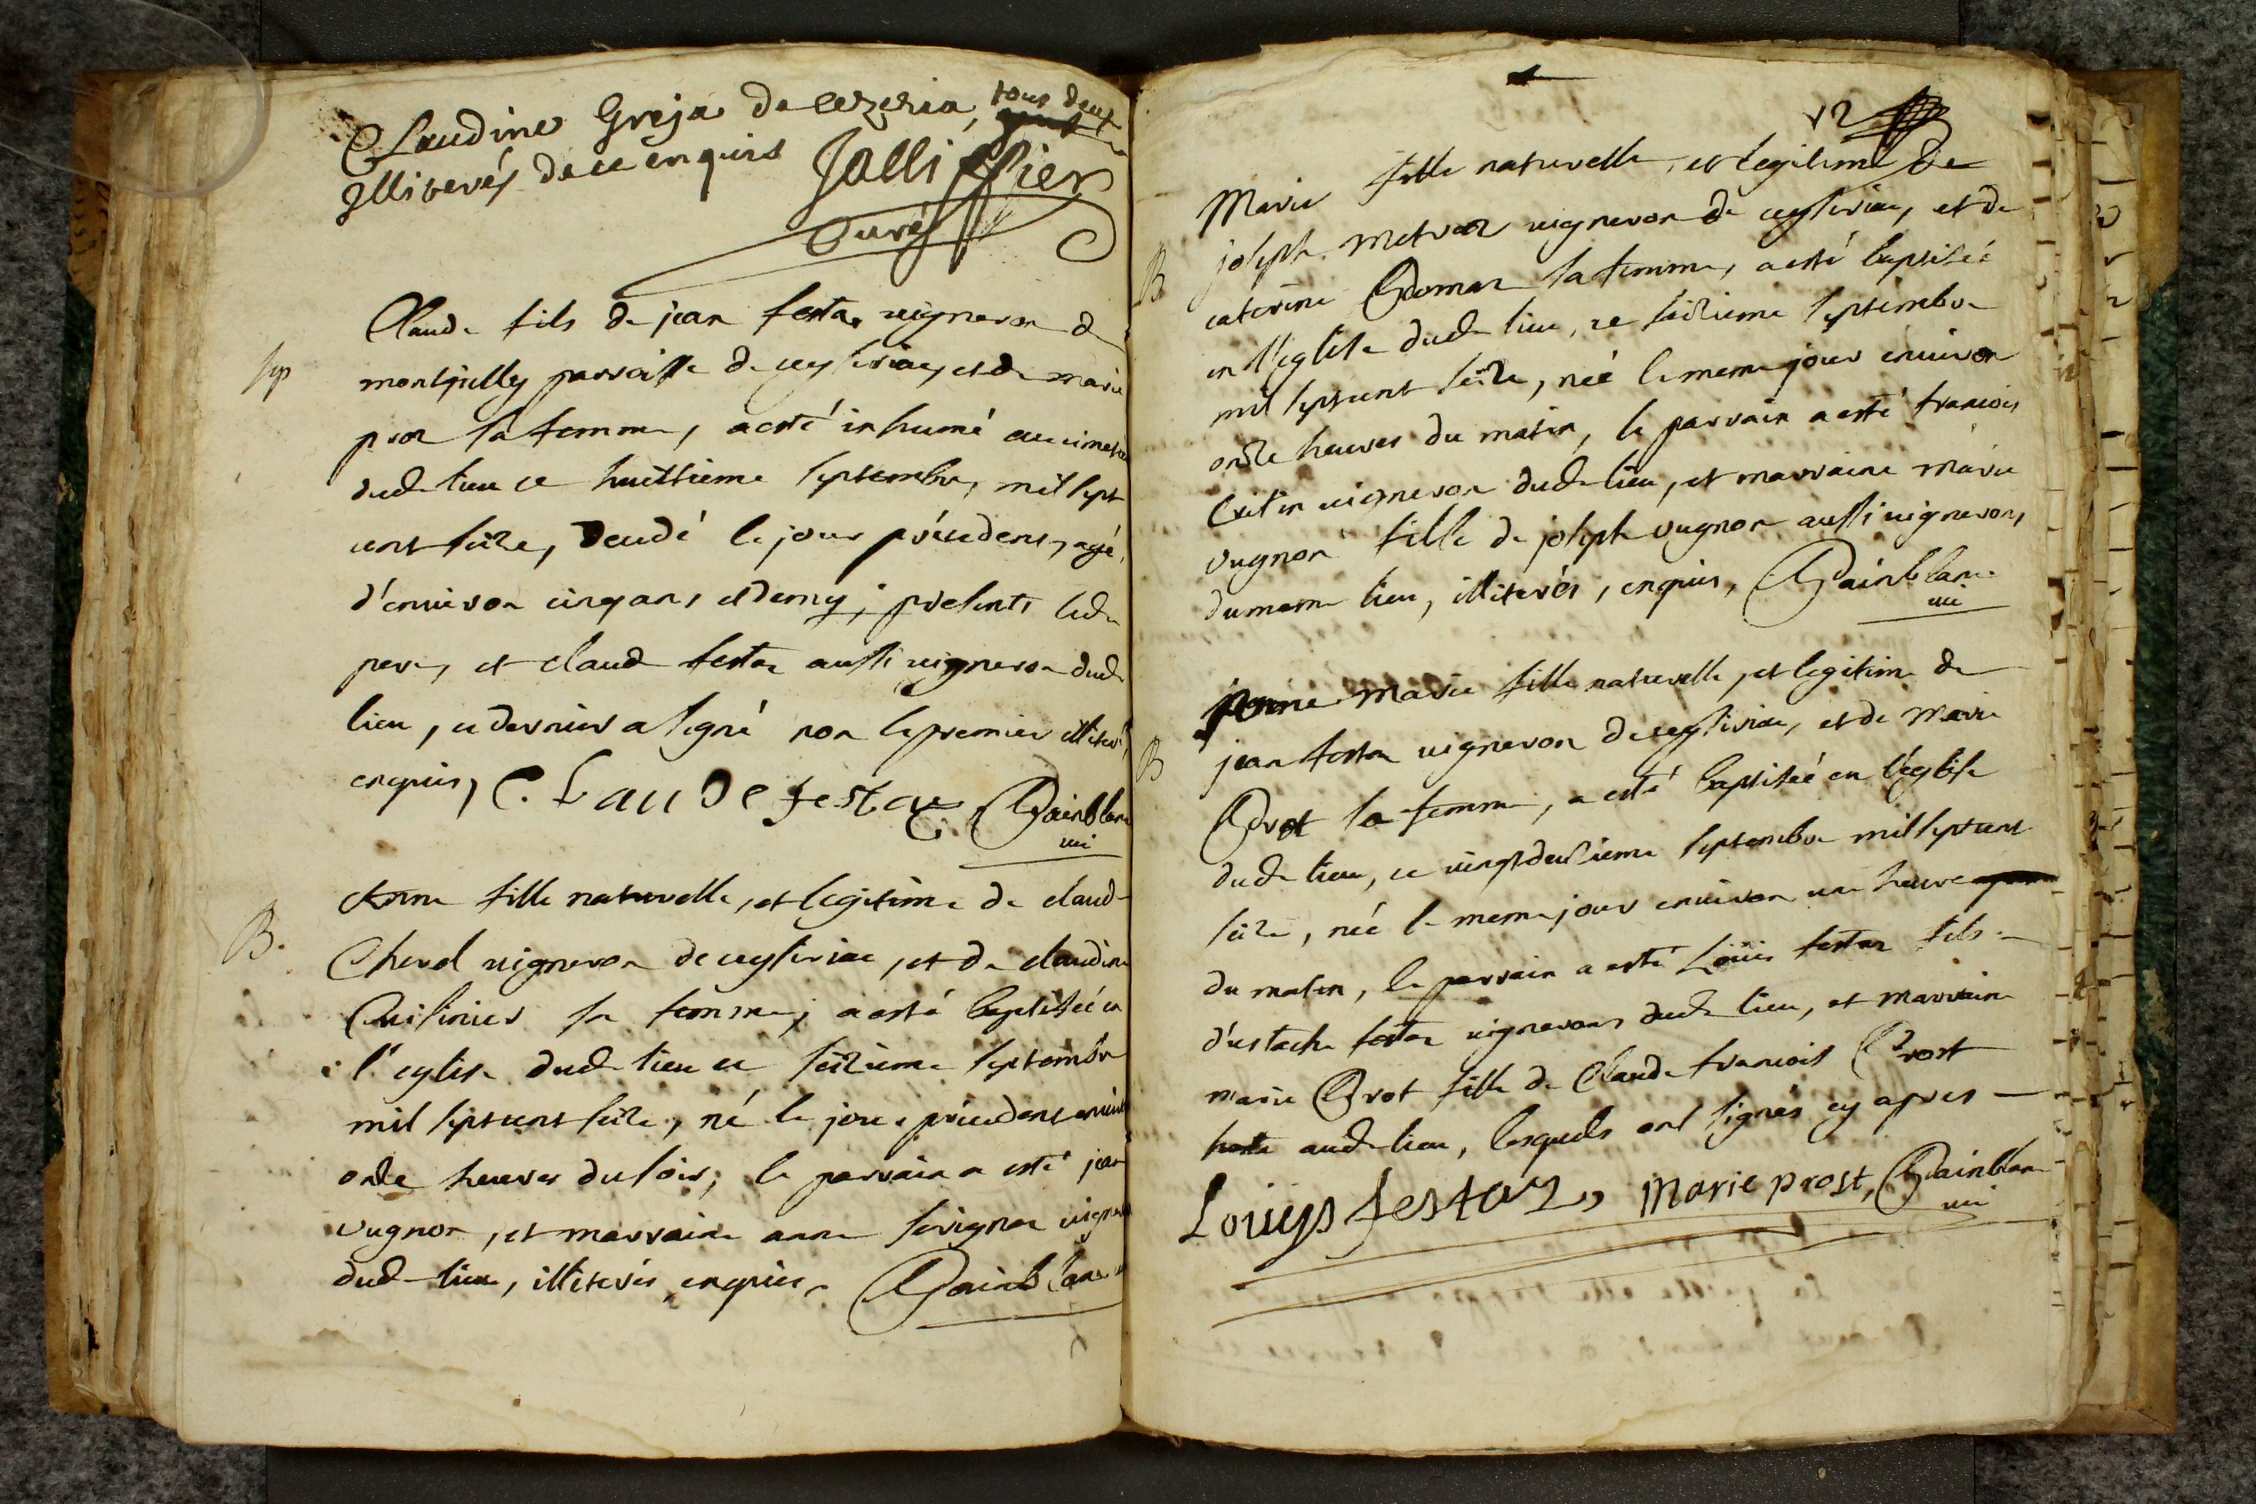 Claudine Greja de cezeria, tous deux
Illiterés de ce enquis Jalliffier
Curé
Claude fils de jean festa vigneron de
sep
montjully parroisse de ceyseriac, et de marie
prot sa femme, a esté inhumé au cimetie
dud lieu ce huittieme septembre, mil sept
cent seize, decedé le jour précedent, agé
d'environ cinq ans et demy; presents led
pere, et claude festa aussi vigneron dud
lieu, ce dernier a signé non le premier illiteré
enquis, C. Laude festaz Painblanc
vic
Anne fille naturelle, et legitime de claude
B.
Chevel vigneron de ceyseriac, et de claudine
Cuisinier sa femme, a esté baptisée en
l'eglise dud lieu ce seizieme septembre
mil sept cent seize, né le jour précedent environ
onze heures du soir; le parrain a esté jean
vugnon, et marraine anne sevignon vigneron
dud lieu, illiterés enquis, Painblanc
12
Marie fille naturelle, et legitime de
joseph metraz vigneron de ceyseriac, et de
B
caterine Roman sa femme, a esté baptisée
en l'eglise dud lieu, ce seizieme septembre
mil sept cent seize, née le meme jour environ
onze heures du matin, le parrain a esté francois
Cretin vigneron dud lieu, et marraine marie
vugnon fille de joseph vugnon aussi vigneron,
du meme lieu, illiterés, enquis, Painblanc
vic
jenne marie fille naturelle, et legitime de
jean festa vigneron de ceyseriac, et de Marie
B
Prot sa femme, a esté baptisée en l'eglise
dud lieu, ce vingtdeuzieme septembre mil sept cent
seize, née le meme jour environ une heure
du matin, le parrain a esté Loüis festaz fils
d'ustache festaz vignerons dud lieu, et marraine
marie Prot fille de Claude francois Prost
hoste aud lieu, lesquels ont signés cy apres
Louys festaz, Marie prost, Painblanc
vic